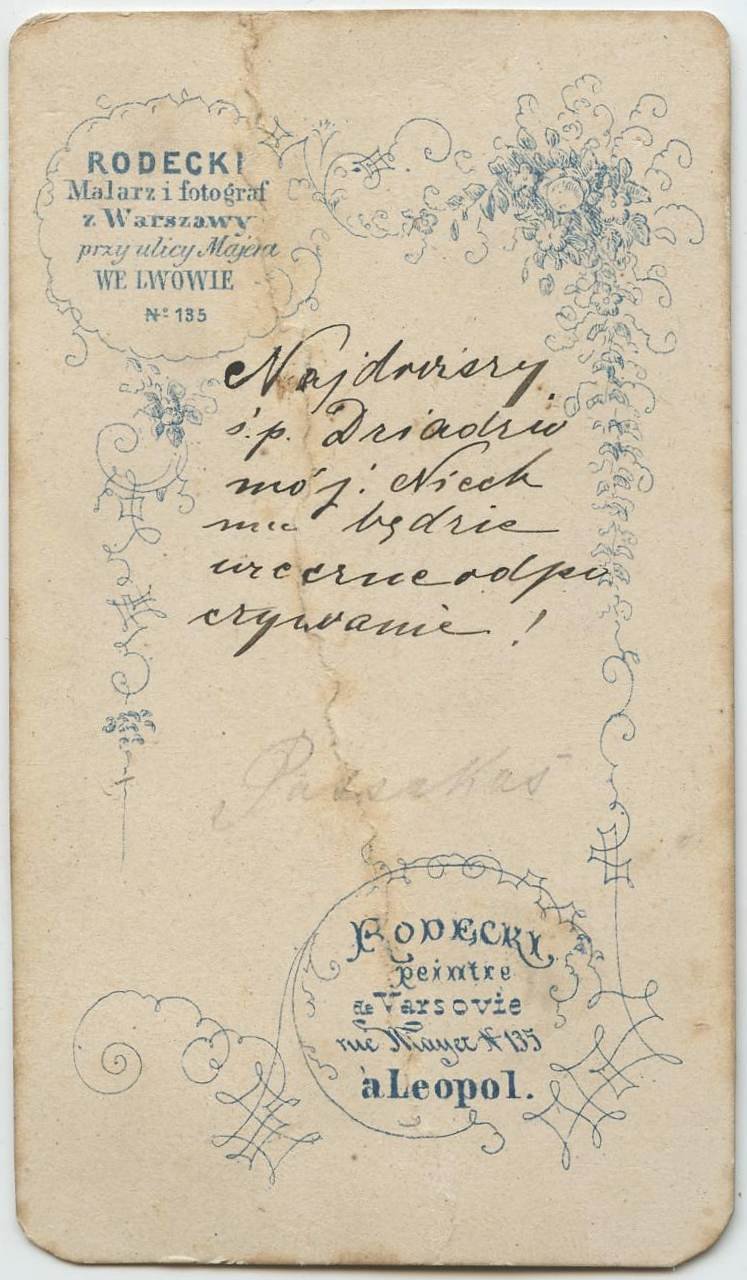 RODECKI
Malarz i fotograf
z Warszawy
przy ulicy Majera
WE LWOWIE
Nº 135
Najdroższy
ś.p. Dziadzio
mój! Niech
mu będzie
wieczne odpo
czywanie!
RODECKI
peintre
de Varsovie
rue Mayer Nº 135
à Leopol.